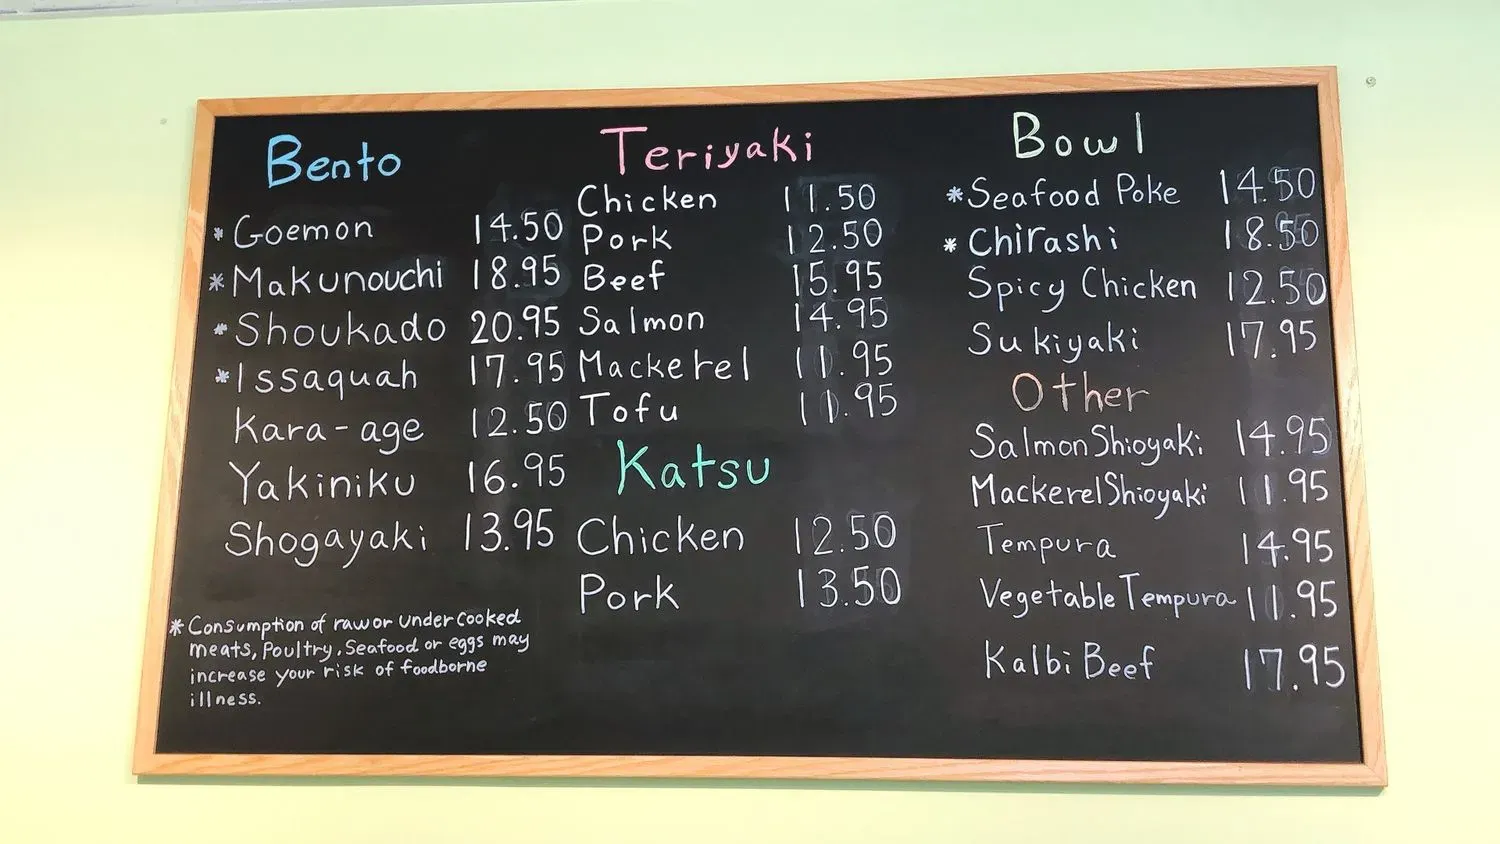 Bento
* Goemon 14.50
* Makunouchi 18.95
* Shoukado 20.95
* Issaquah 17.95
Kara-age 12.50
Yakiniku 16.95
Shogayaki 13.95
* Consumption of raw or undercooked
meats, Poultry, Seafood or eggs may
increase your risk of foodborne
illness.
Teriyaki
Chicken 11.50
Pork 12.50
Beef 15.95
Salmon 14.95
Mackerel 11.95
Tofu 11.95
Katsu
Chicken 12.50
Pork 13.50
Bowl
* Seafood Poke 14.50
* Chirashi 18.50
Spicy Chicken 12.50
Sukiyaki 17.95
Other
Salmon Shioyaki 14.95
Mackerel Shioyaki 11.95
Tempura 14.95
Vegetable Tempura 11.95
Kalbi Beef 17.95